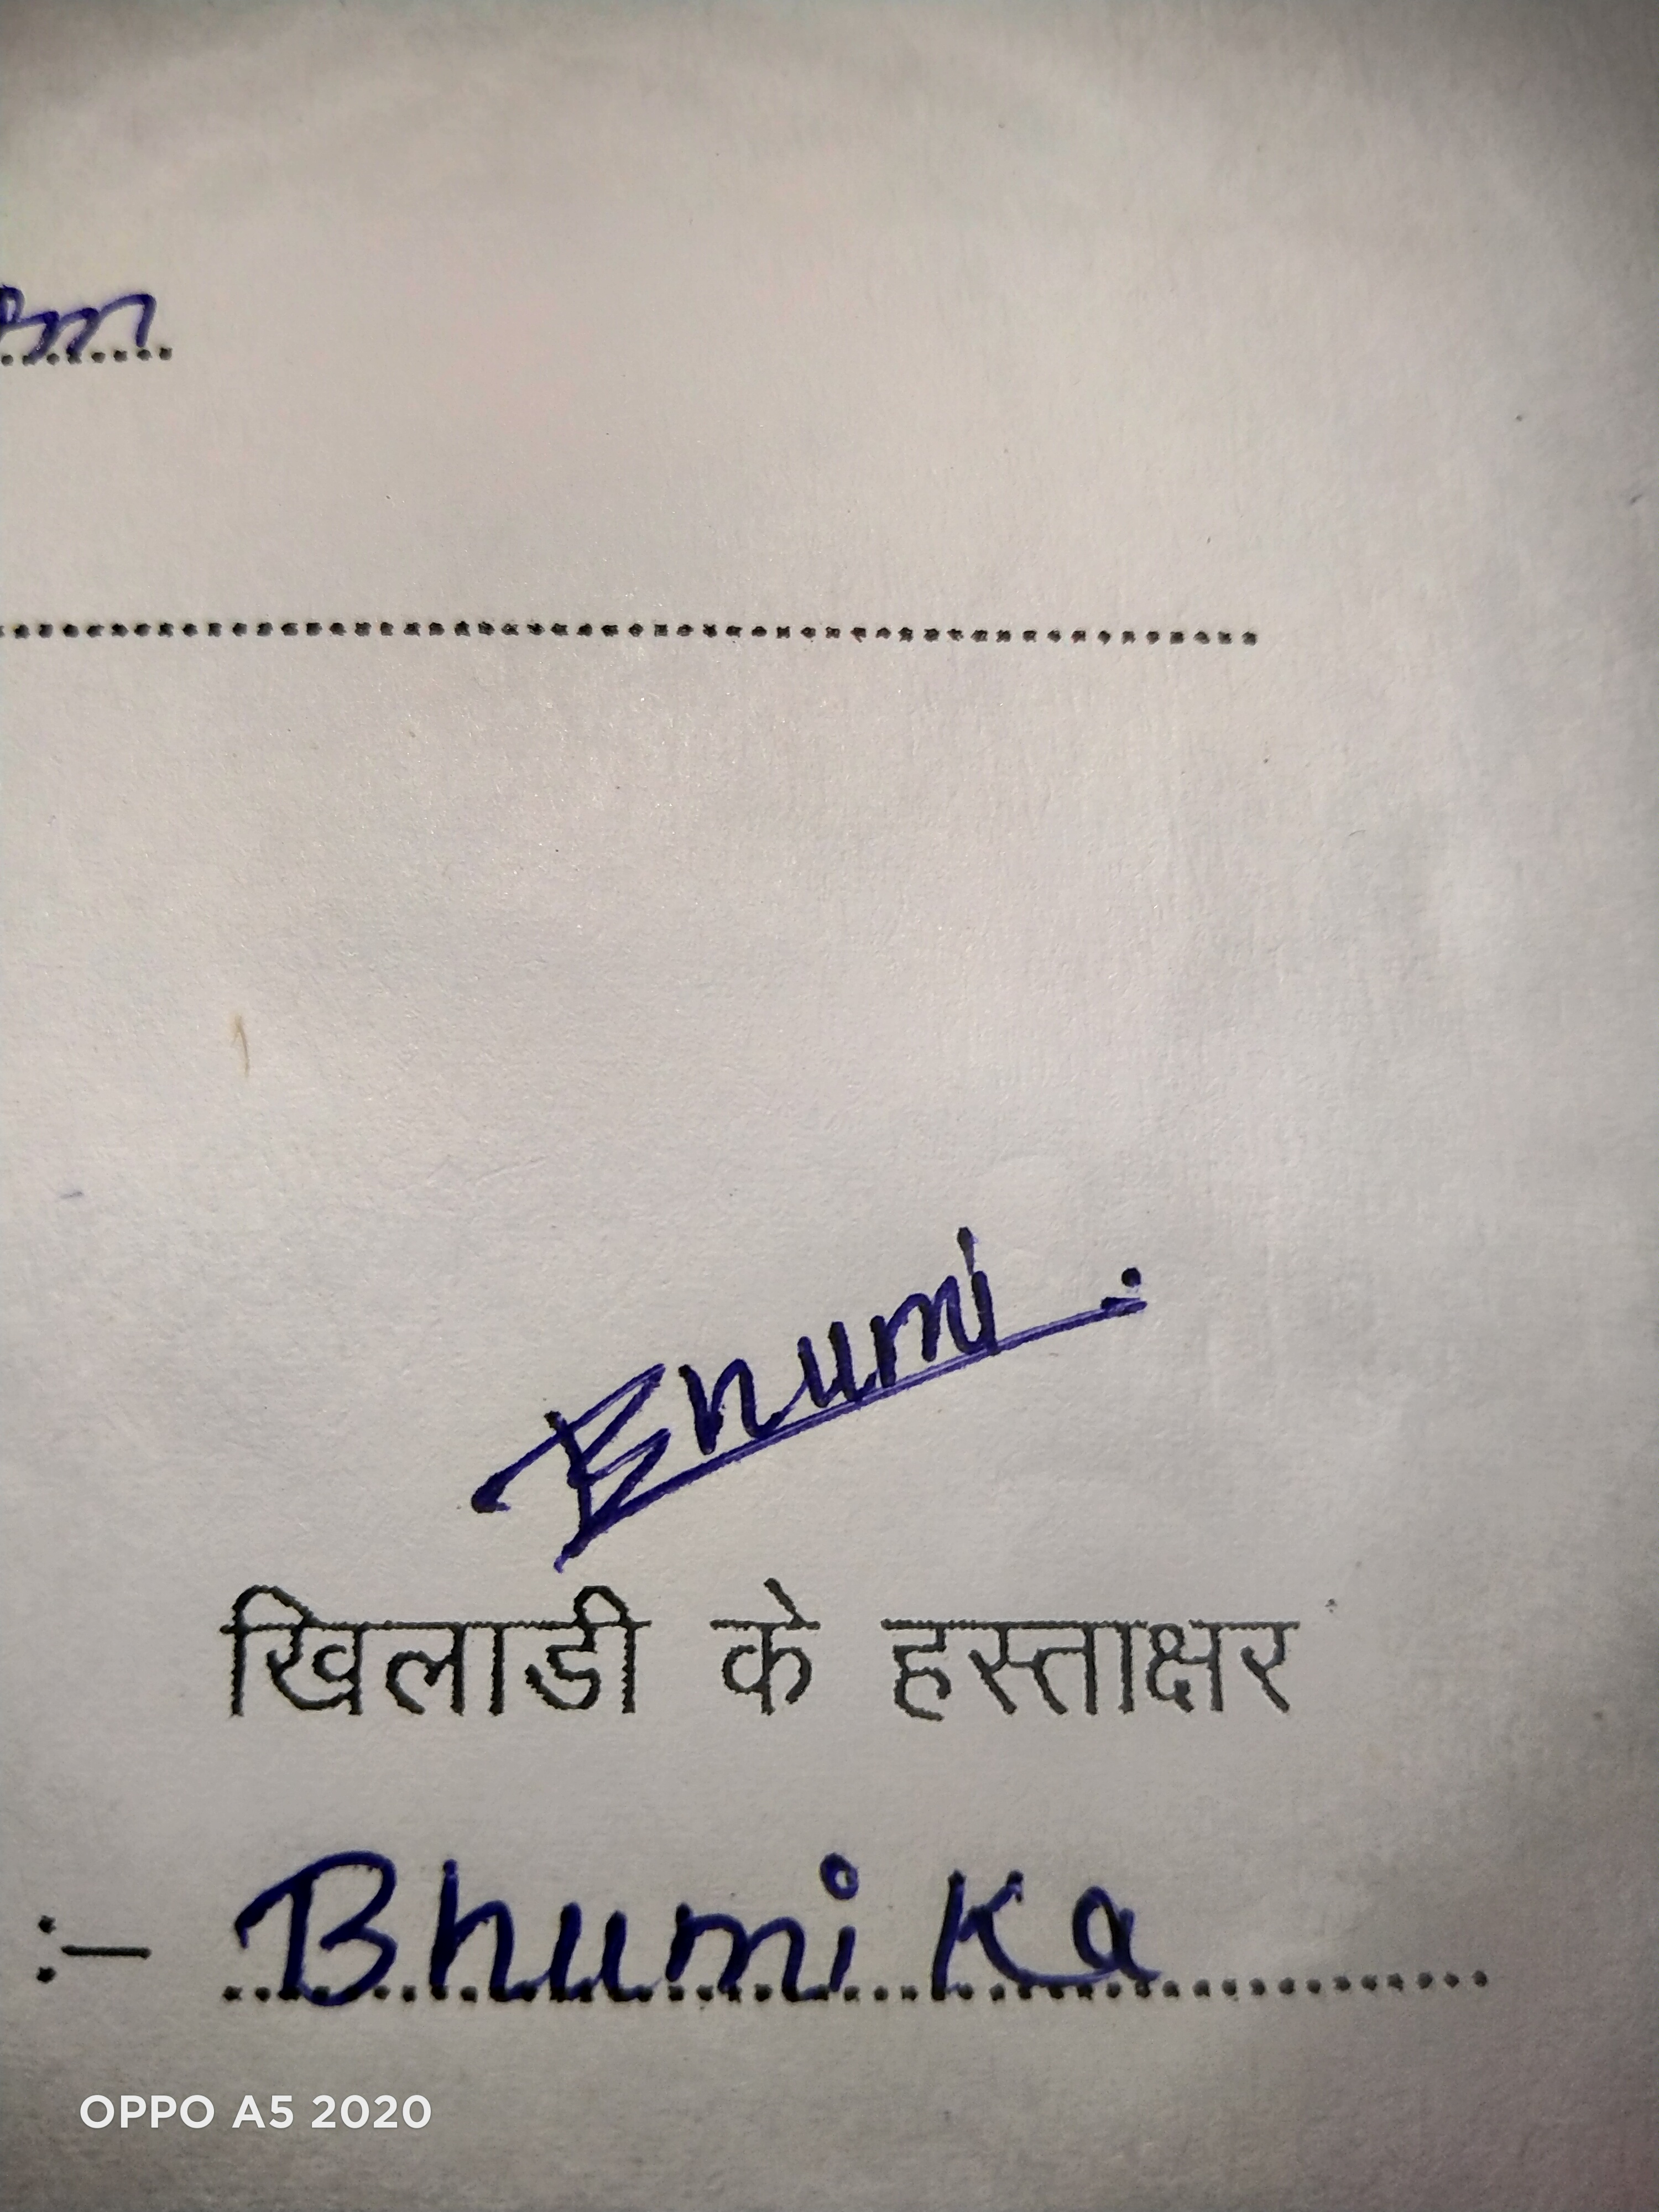 Bhumi
खिलाडी के हस्ताक्षर
:- Bhumika
OPPO A5 2020